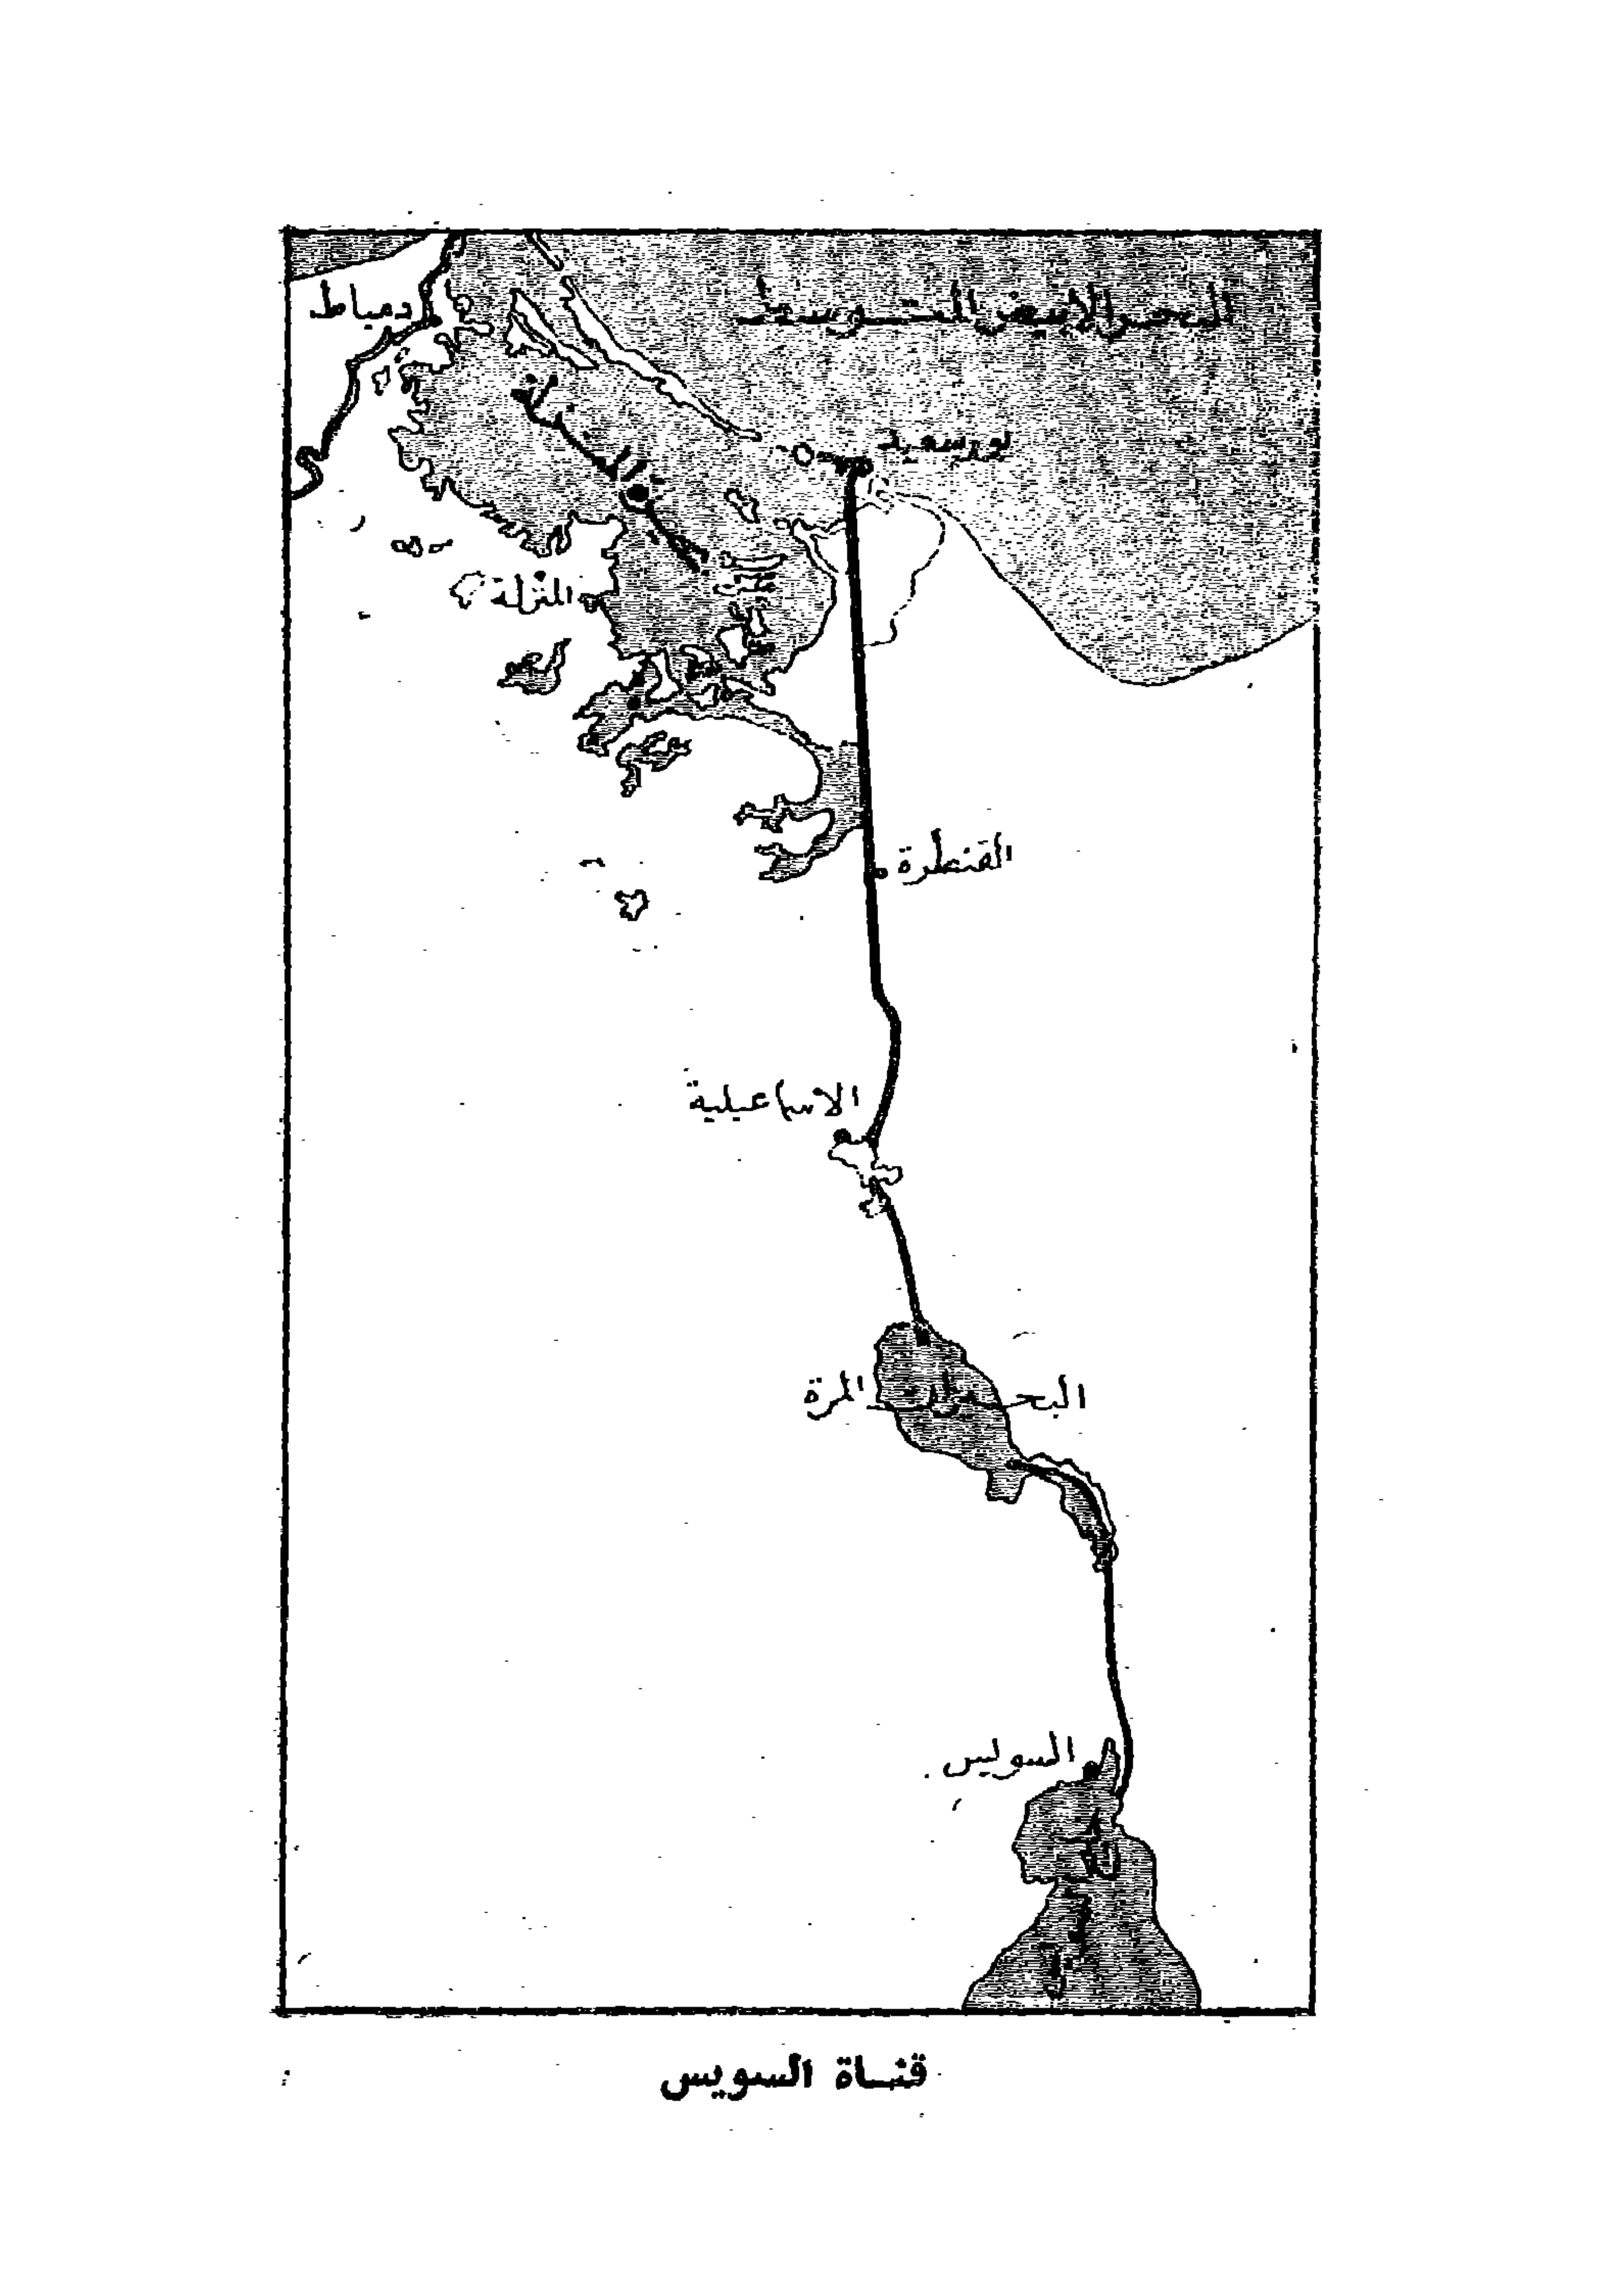 البحر الابيض المتوسط
دمياط
بورسعيد
بحيرة المنزلة
المنزلة
القنطرة
الاسماعيلية
البحيرات المرة
السويس
قناة السويس